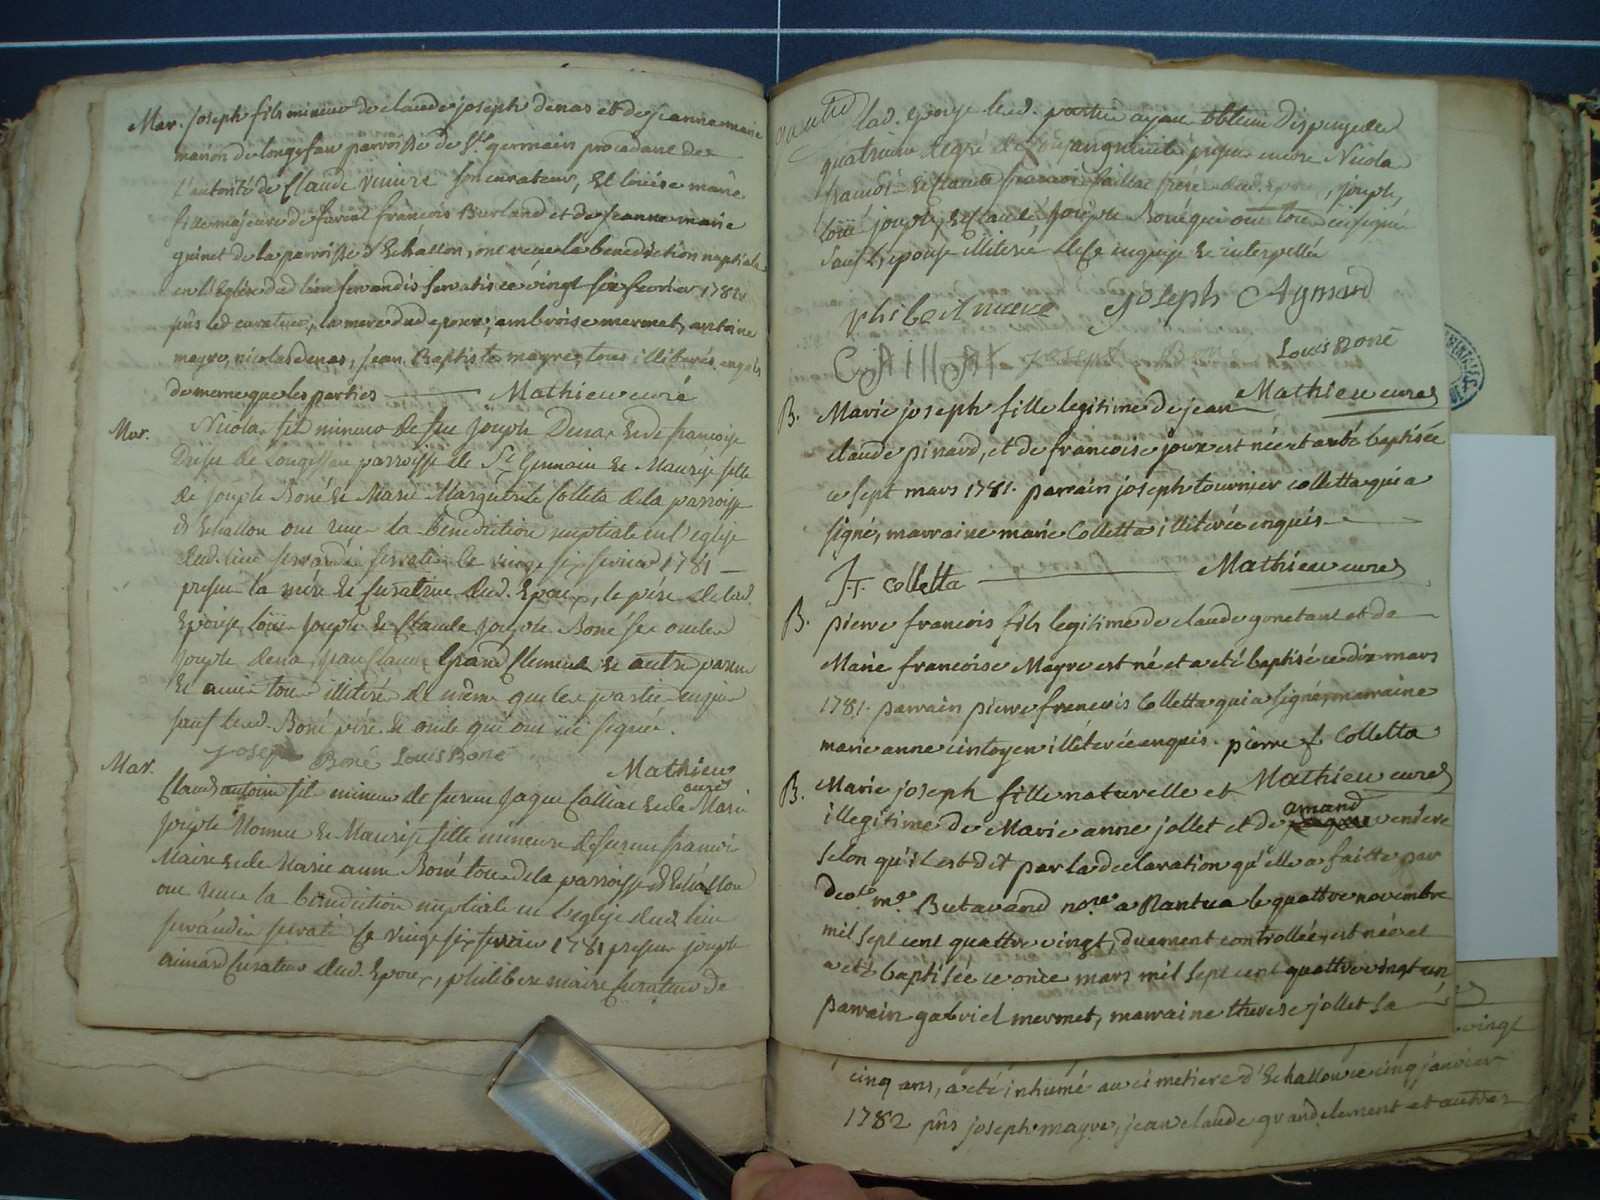 Mar. joseph fils mineur de claude joseph denas et de jeanne marie
manon de longefan parroisse de St germain procedant de
l'autorité de Claude viniere son curateur, Et loüise marie
fille majeure de furent françois Burland et de jeanne marie
guinet de la parroisse d'Echallon, ont reçu la benediction nuptiale
en l'Eglise dud lieu servandis servatis ce vingt six fevrier 1781
pñs led curateur, la mere dud epoux, ambroise mermet, antoine
mayre, nicolas denas, jean Baptiste mayre, tous illiterés enquis
de meme que les parties Mathieu curé
Mar. Nicolas fils mineur de feu joseph Denas et de françoise
de Longefan parroisse de St Germain et Maurise fille
de joseph Boné et Marie Marguerite Colleta de la parroisse
d'Echallon ont reçu la benediction nuptiale en l'eglise
dud. lieu servandis servatis le vingt six fevrier 1781
presens la mère et curatrice dud. Epoux, le père de lad.
Epouse, loüis joseph et Claude joseph Boné ses oncles
joseph denas, jean Claude Grand Clement et autres parens
et amis tous illiterés de même que les parties enquis
sauf led. Boné père et oncle qui ont ici signé.
joseph Boné Louis Boné
Mathieu
curé
Mar. Claud antoine fils mineur de furent jaque Calliat et de Marie
josephe Monnet et Maurise fille mineure de furent françois
Maire et de Marie anne Boné tous de la parroisse d'Echallon
ont reçu la benediction nuptiale en l'eglise dud. lieu
servandis servatis le vingt six fevrier 1781 presens joseph
aimard curateur dud. Epoux, philibert maire curateur de
lad. epouse lesd. parties ayant obtenu dispense du
quatrieme degré de consanguinité presens encore Nicolas
françois et Claude françois Caillat frères dud. epoux, joseph,
loüis joseph, et claude joseph Boné qui ont tous ici signé
sauf l'epouse illiterée de ce enquise et interpellée
philibert maire joseph Aymard
CAillAt joseph Boné Louis Boné
Mathieu curé
B. Marie joseph fille legitime de jean
claude pinard, et de francoise joux est née et a eté baptisée
ce sept mars 1781. parrain joseph tournier colletta qui a
signé, marraine marie Colletta illiterée enquis
J.T. colletta Mathieu curé
B. pierre francois fils legitime de claude gonetant et de
Marie francoise Mayre est né et a eté baptisé ce dix mars
1781. parrain pierre francois Colletta qui a signé, marraine
marie anne cintoyen illiterée enquis. pierre f Colletta
Mathieu curé
B. Marie joseph fille naturelle et
illegitime de Marie anne jollet et de amand vendere
selon qu'il est dit par la declaration qu'elle a faitte par
devt me Butavand nore a Nantua le quattre novembre
mil sept cent quattre vingt, duement controllée, est née et
a eté baptisée ce once mars mil sept cent quattre vingt un
parrain gabriel mermet, marraine therese jollet sa
vingt
cinq ans, a eté inhumé au cimetiere d'Echallon ce cinq janvier
1782 pñs joseph mayre, jean claude grandclement et autres